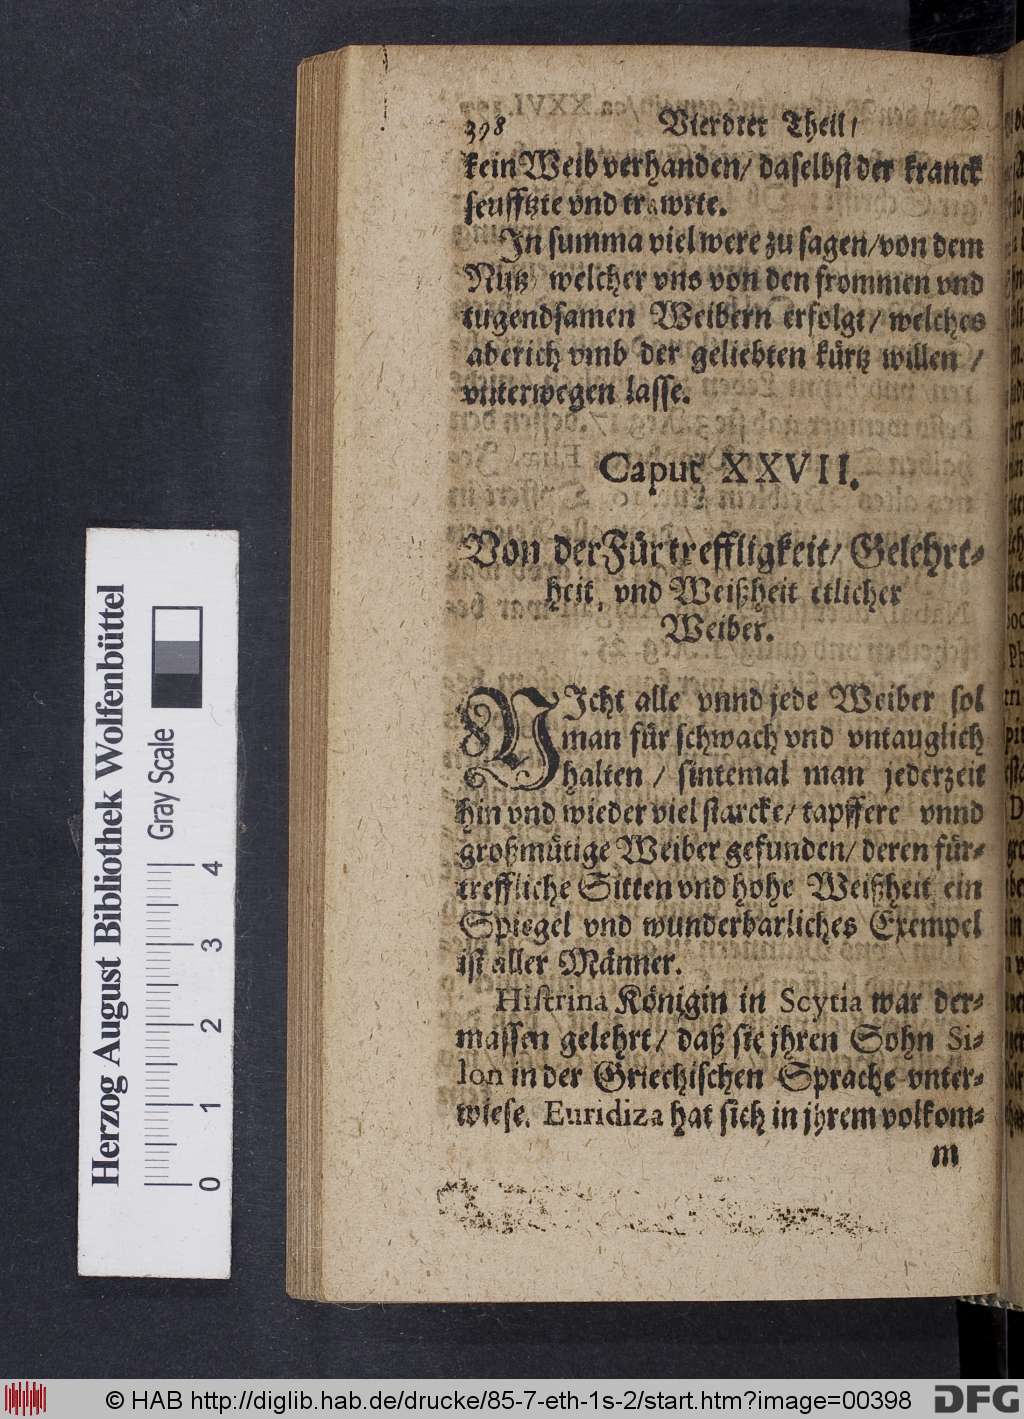 398 Vierdter Theil/
kein Weib verhanden/ daselbst der kranck
seufftzte vnd trawrte.
In summa viel were zu sagen/ von dem
Nutz/ welcher vns von den frommen vnd
tugendsamen Weibern erfolgt/ welches
aber ich vmb der geliebten kürtz willen /
vnterwegen lasse.
Caput XXVII.
Von der Fürtreffligkeit/ Gelehrt-
heit, vnd Weißheit etlicher
Weiber.
NIcht alle vnnd jede Weiber sol
man für schwach vnd vntauglich
halten / sintemal man jederzeit
hin vnd wieder viel starcke/ tapffere vnnd
großmütige Weiber gefunden/ deren für-
treffliche Sitten vnd hohe Weißheit ein
Spiegel vnd wunderbarliches Exempel
ist aller Männer.
Histrina Königin in Scytia war der-
massen gelehrt/ daß sie jhren Sohn Si-
lon in der Griechischen Sprache vnter-
wiese. Euridiza hat sich in jhrem volkom-
m
Herzog August Bibliothek Wolfenbüttel
Gray Scale
0 1 2 3 4
© HAB http://diglib.hab.de/drucke/85-7-eth-1s-2/start.htm?image=00398
DFG